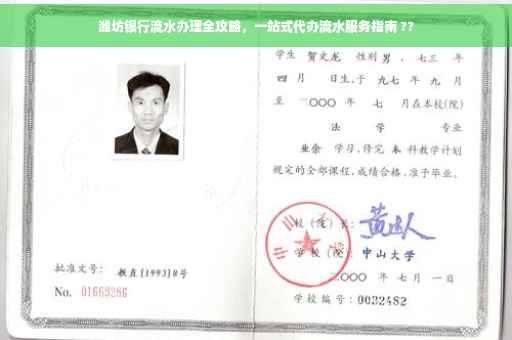 潍坊银行流水办理全攻略，一站式代办流水服务指南 ??
学生 贺文龙 性别 男 ，七三 年
四 月 日生，于 九七 年 九 月
至 二〇〇〇 年 七 月在本校(院)
法 学 专业
业余 学习，修完 本 科教学计划
规定的全部课程，成绩合格，准予毕业。
校 (院) 长：
学 校 (院)： 中山大学
二〇〇〇 年 七 月 一 日
批准文号： 教直[1993]8号
No. 01669286
学校编号：0032482